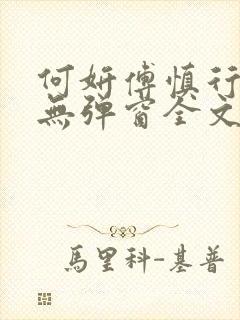 何妍傅慎行
無彈窗全文
馬里科-基普